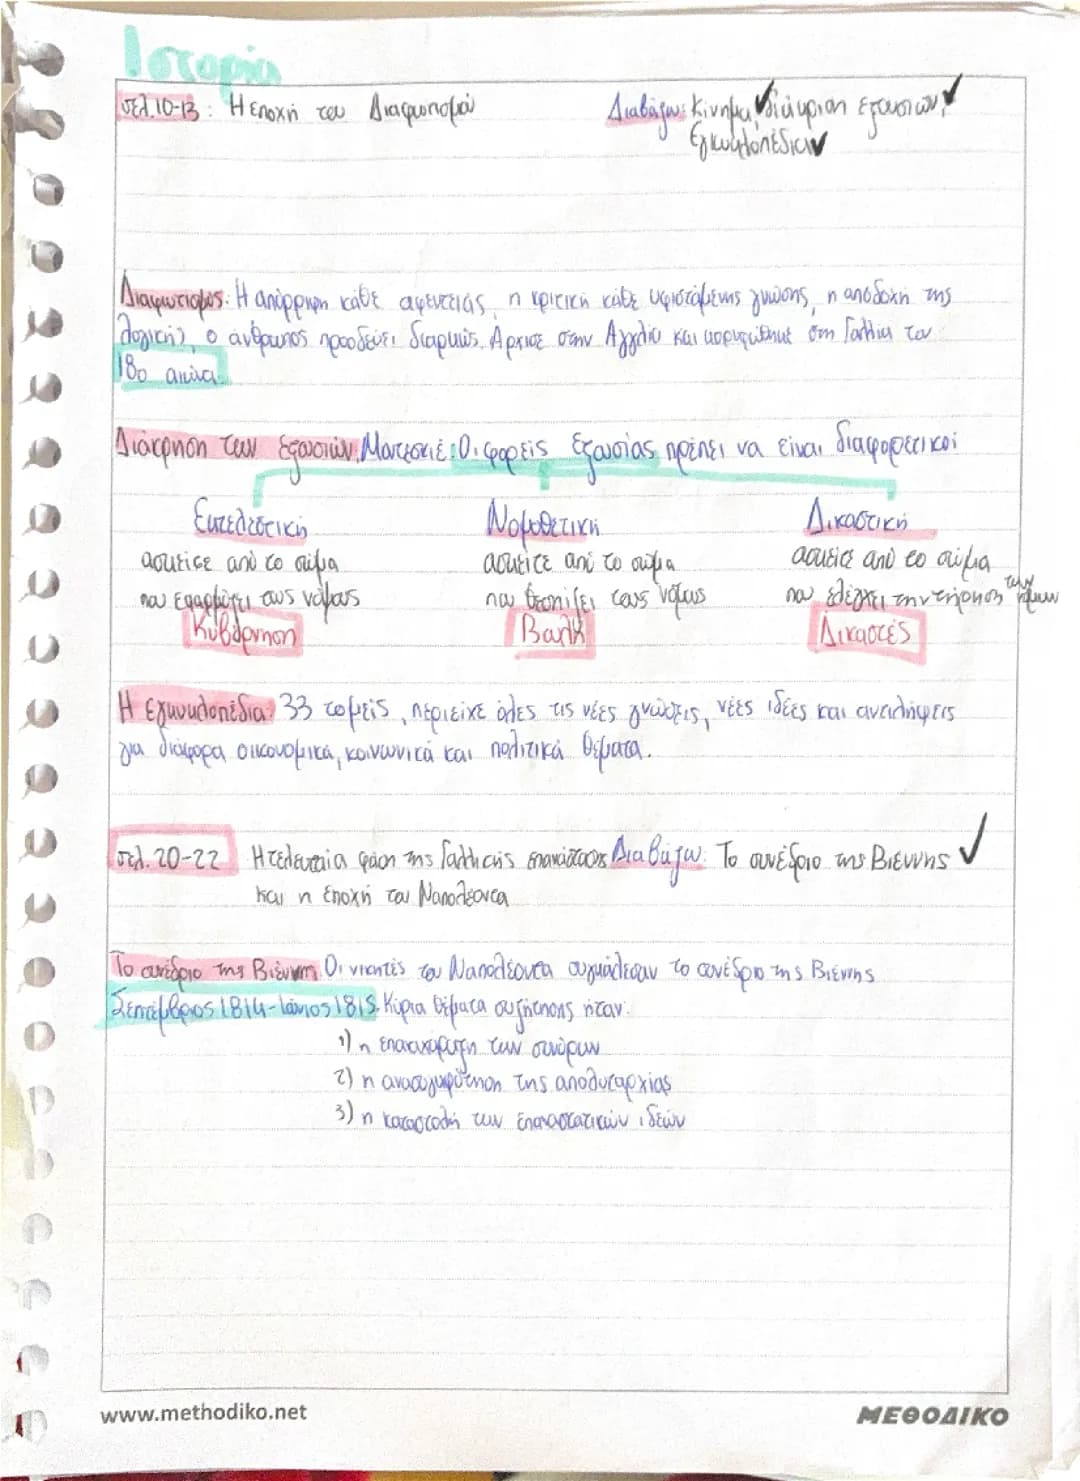 Ιστορία
σελ.10-13: Η εποχή του Διαφωτισμού Διαβάζω: Κίνημα, διάκριση εξουσιών,
Εγκυκλοπέδια
Διαφωτισμός: Η απόρριψη κάθε αυθεντείας, η κριτική κάθε υφιστάμενης γνώσης, η αποδοχή της
λογική, ο άνθρωπος προοδεύει διαρκώς. Άρχισε στην Αγγλία και κορυφώθηκε στη Γαλλία τον
18ο αιώνα.
Διάκρηση των εξουσιών: Μοντεσκιέ: Οι φορείς εξουσίας πρέπει να είναι διαφορετικοί
Εκτελεστική Νομοθετική Δικαστική
ασκείτε από το σώμα ασκείτε από το σώμα ασκείτε από το σώμα
που εφαρμόζει τους νόμους που θεσπίζει τους νόμους που ελέγχει την τήρηση των νόμων
Κυβέρνηση Βουλή Δικαστές
Η εγκυκλοπέδια: 33 τομείς, περιείχε όλες τις νέες γνώσεις, νέες ιδέες και αντιλήψεις
για διάφορα οικονομικά, κοινωνικά και πολιτικά θέματα.
σελ. 20-22 Η τελευταία φάση της Γαλλικής επανάστασης Διαβάζω: Το συνέδριο της Βιέννης
και η εποχή του Ναπολέοντα
Το συνέδριο της Βιέννη: Οι νικητές του Ναπολέοντα συγκάλεσαν το συνέδριο της Βιέννης
Σεπτέμβριος 1814-Ιούνιος 1815. Κύρια θέματα συζήτησης ήταν:
1) η επαναχάραξη των συνόρων
2) η ανασυγκρότηση της απολυταρχίας
3) η καταστολή των επαναστατικών ιδεών
www.methodiko.net ΜΕΘΟΔΙΚΟ